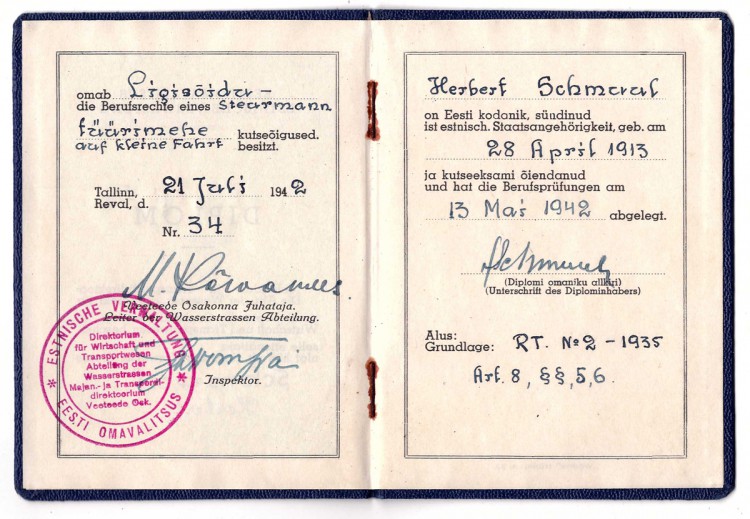 omab Ligisõidu-
die Berufsrechte eines Steurmann
tüürimehe kutseõigused.
auf kleine Fahrt besitzt.
Tallinn, 21 Juli 1942
Reval, d.
Nr. 34
Veeteede Osakonna Juhataja.
Leiter der Wasserstrassen Abteilung.
Inspektor.
ESTNISCHE VERWALTUNG
Direktorium
für Wirtschaft und
Transportwesen
Abteilung der
Wasserstrassen
Majan.- ja Transpordi-
direktoorium
Veeteede Osk.
EESTI OMAVALITSUS
Herbert Schmaul
on Eesti kodonik, sündinud
ist estnisch. Staatsangehörigkeit, geb. am
28 April 1913
ja kutseeksami õiendanud
und hat die Berufsprüfungen am
13 Mai 1942 abgelegt.
(Diplomi omaniku allkiri)
(Unterschrift des Diplominhabers)
Alus:
Grundlage: RT. № 2 - 1935
Art. 8, §§, 5, 6.